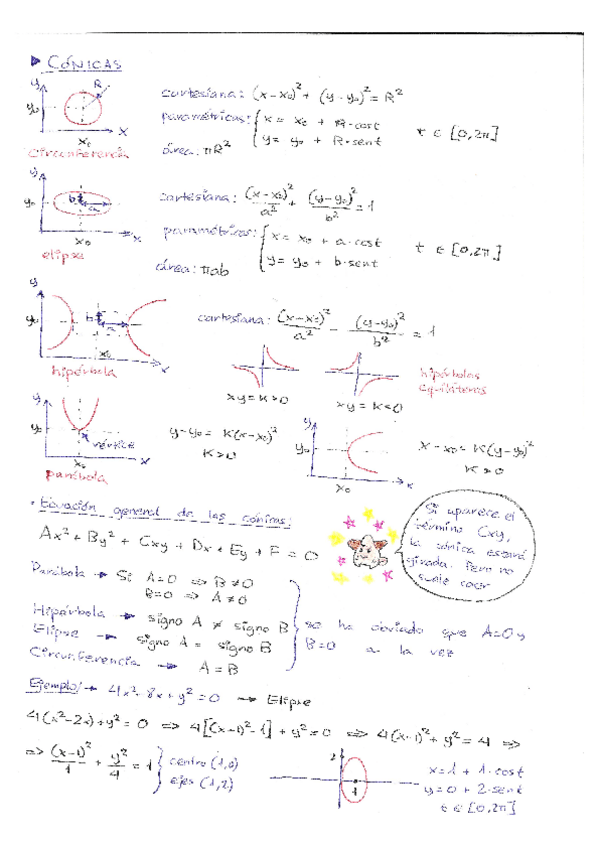 ▶ CÓNICAS
y R
y₀ x₀ x
circunferencia
cartesiana: (x-x₀)² + (y-y₀)² = R²
paramétricas: { x = x₀ + R·cost
y = y₀ + R·sent t ∈ [0,2π]
área: πR²
y y₀ b a x₀ x
elipse
cartesiana: (x-x₀)²/a² + (y-y₀)²/b² = 1
paramétricas: { x = x₀ + a·cost
y = y₀ + b·sent t ∈ [0,2π]
área: πab
y y₀ b a x₀ x
hipérbola
cartesiana: (x-x₀)²/a² - (y-y₀)²/b² = 1
xy = K > 0
xy = K < 0
hipérbolas
equiláteras
y y₀ x₀ x
vértice
parábola
y-y₀ = K(x-x₀)²
K > 0
y y₀ x₀ x
x-x₀ = K(y-y₀)²
K > 0
• Ecuación general de las cónicas:
Ax² + By² + Cxy + Dx + Ey + F = 0
Si aparece el
término Cxy,
la cónica estará
girada. Pero no
suele caer
Parábola → Si A=0 ⇒ B≠0
B=0 ⇒ A≠0
Hipérbola → signo A ≠ signo B
Elipse → signo A = signo B
Circunferencia → A = B
se ha obviado que A=0 y
B=0 a la vez
Ejemplo/ → 4x²-8x+y²=0 → Elipse
4(x²-2x)+y² = 0 ⇒ 4[(x-1)²-1]+y²=0 ⇒ 4(x-1)²+y²=4 ⇒
⇒ (x-1)²/1 + y²/4 = 1 } centro (1,0)
ejes (1,2)
2
1
x = 1 + 1·cost
y = 0 + 2·sent
t ∈ [0,2π]